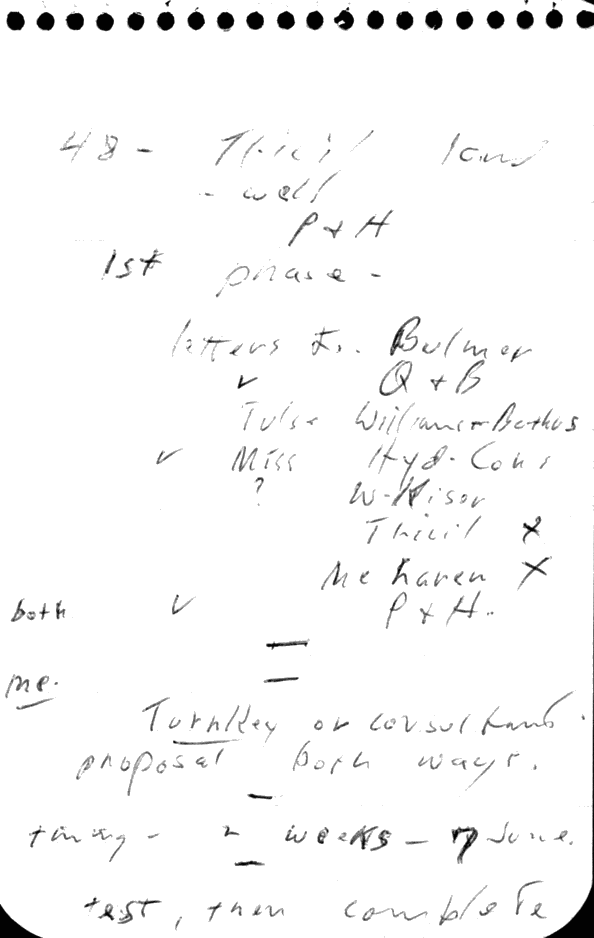 48 - Thicil land
- well
P + H
1st phase -
letters to. Bulmer
✓ Q + B
Tulsa Williams + Bothus
✓ Miss Hyd-Cons
? W-Kisor
Thicil X
Me Karen X
both ✓ P + H.
me.
Turnkey or consultant.
proposal both ways.
timing - 2 weeks - 7 June.
test, then complete